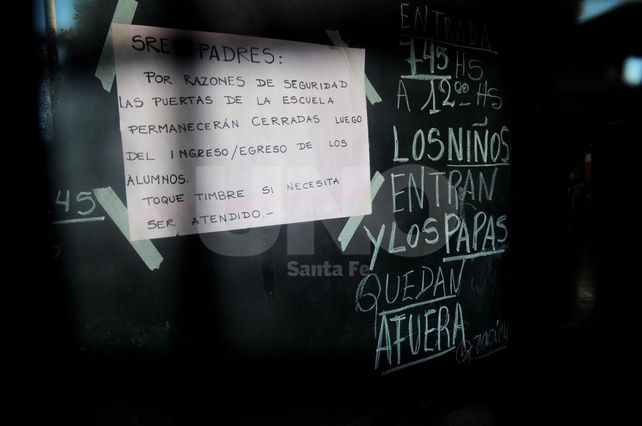 SRES PADRES:
POR RAZONES DE SEGURIDAD
LAS PUERTAS DE LA ESCUELA
PERMANECERÁN CERRADAS LUEGO
DEL INGRESO/EGRESO DE LOS
ALUMNOS.
TOQUE TIMBRE SI NECESITA
SER ATENDIDO.-
45
ENTRADA
7 45 HS
A 12 00 HS
LOS NIÑOS
ENTRAN
Y LOS PAPAS
QUEDAN
AFUERA
UNO
Santa Fe